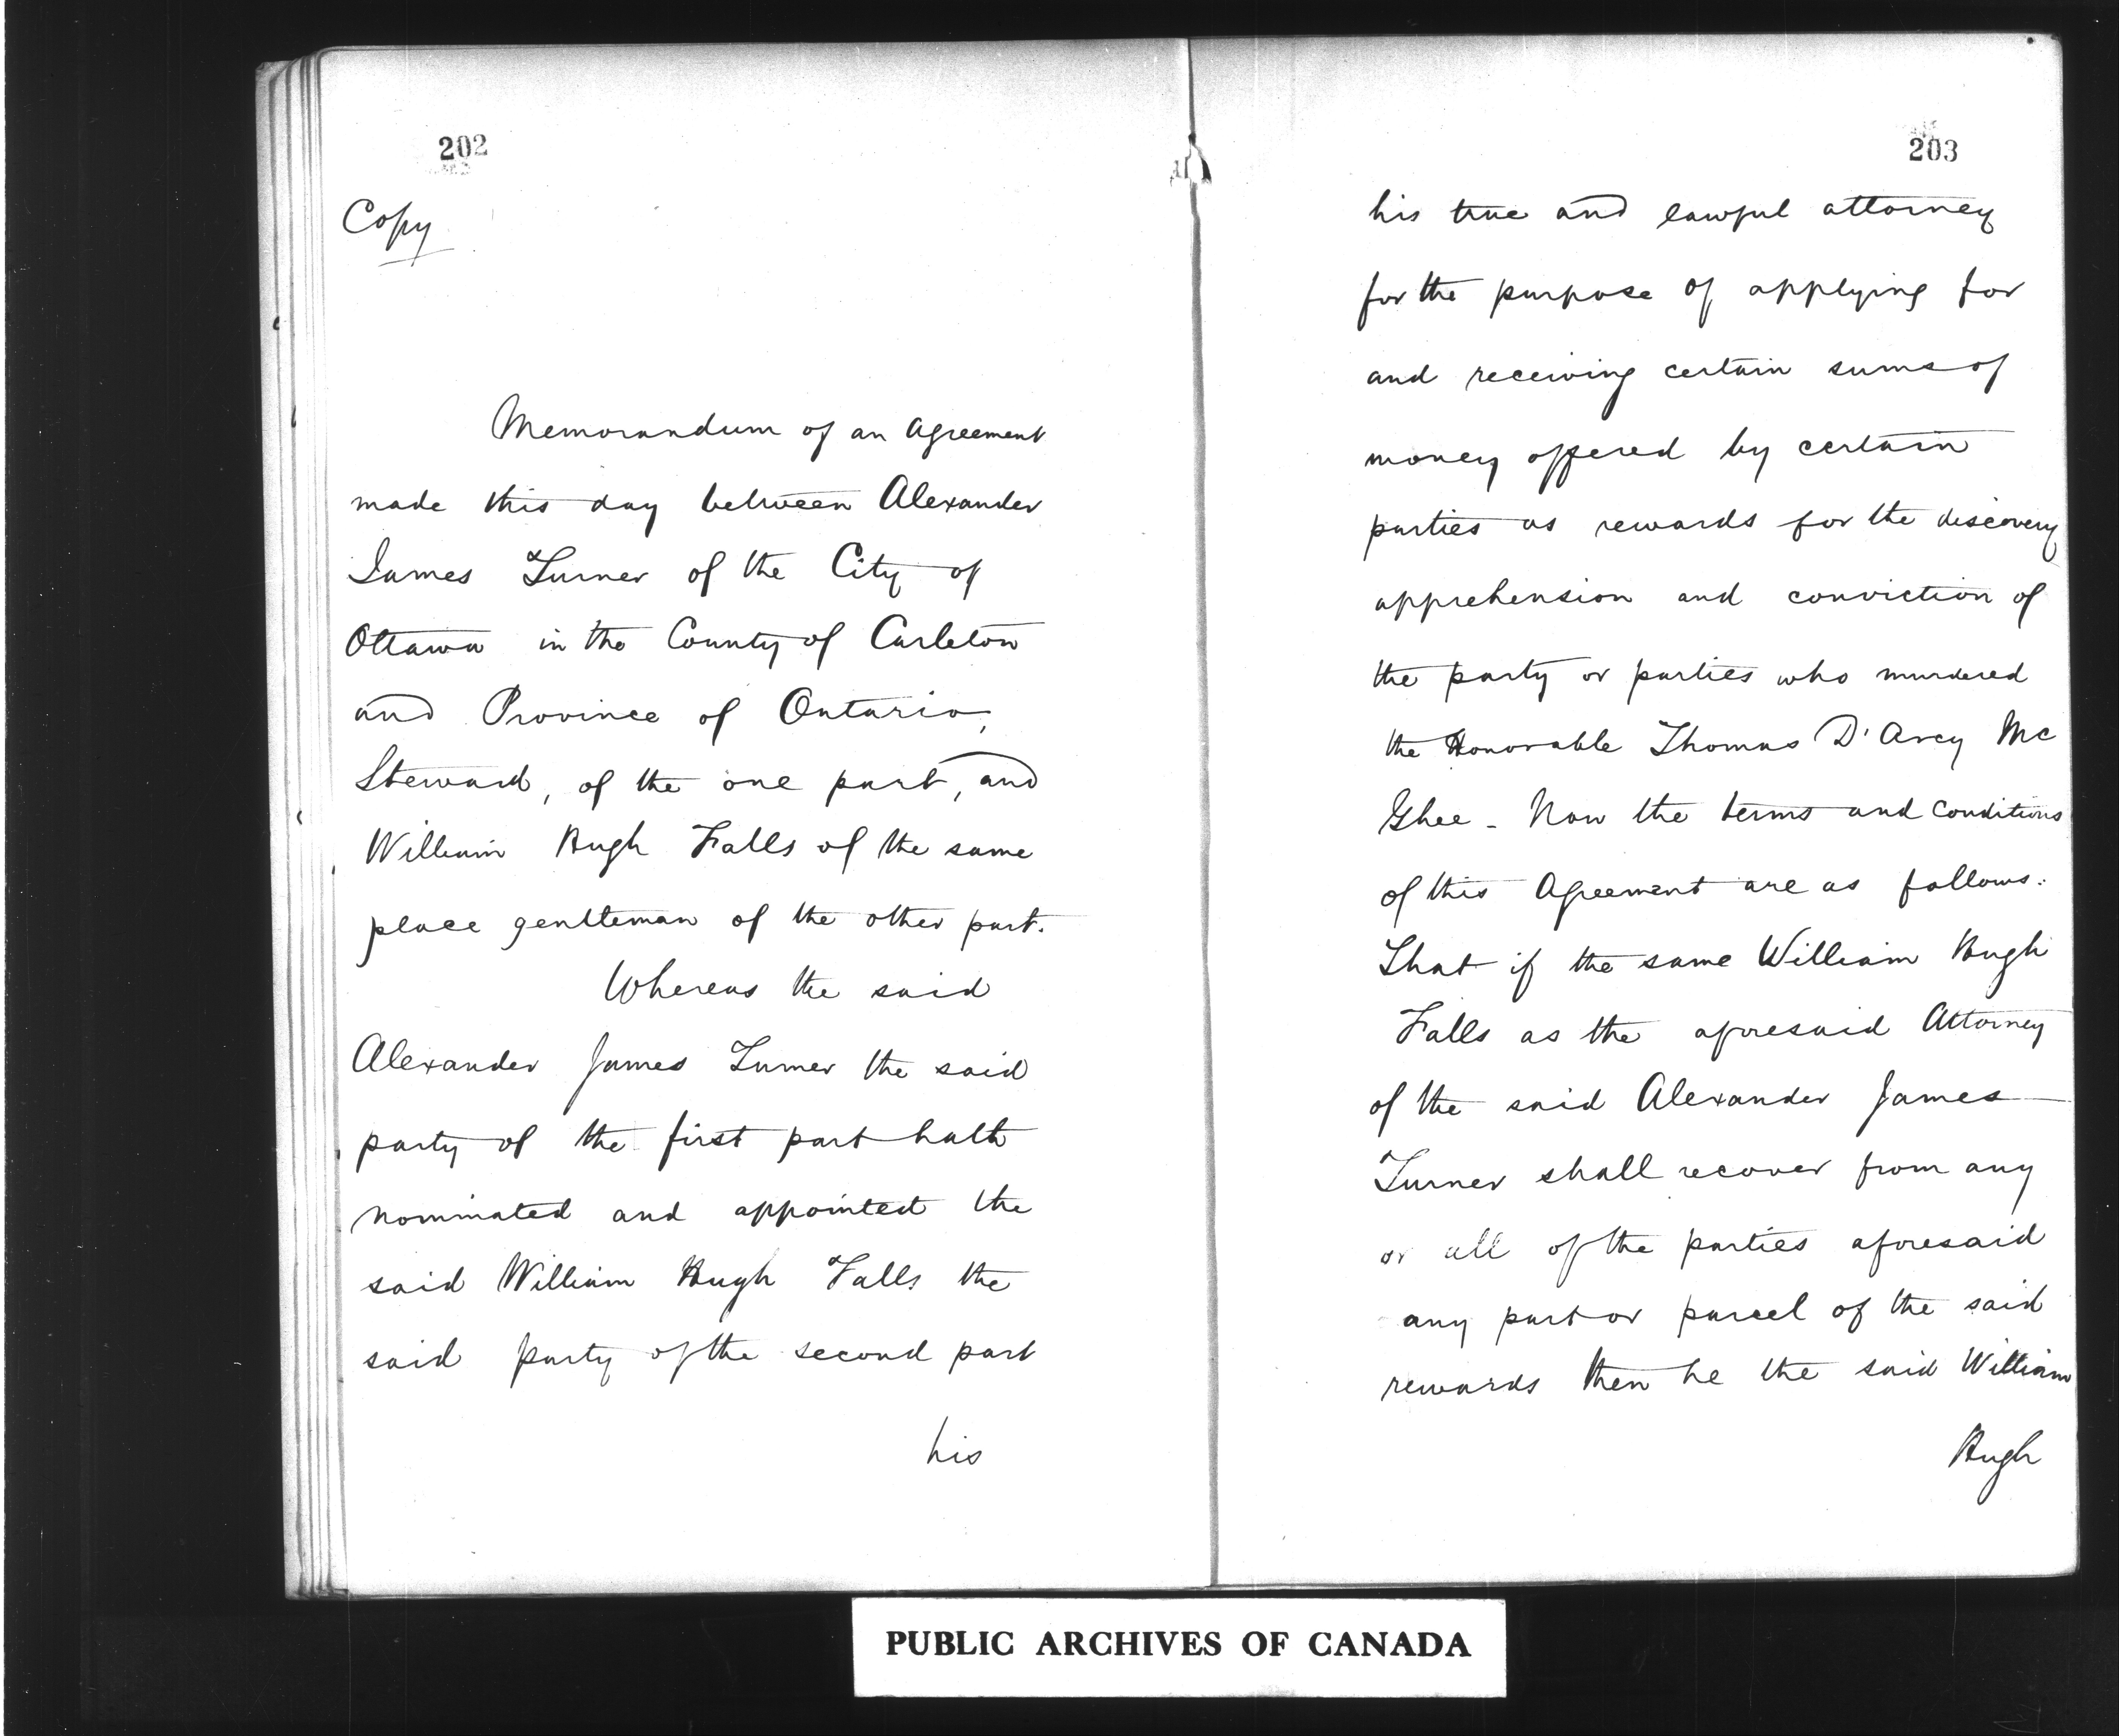 202
Copy
Memorandum of an Agreement
made this day between Alexander
James Turner of the City of
Ottawa in the County of Carleton
and Province of Ontario,
Steward, of the one part, and
William Hugh Falls of the same
place gentleman of the other part.
Whereas the said
Alexander James Turner the said
party of the first part hath
nominated and appointed the
said William Hugh Falls the
said party of the second part
his
203
his true and lawful attorney
for the purpose of applying for
and receiving certain sums of
money offered by certain
parties as rewards for the discovery
apprehension and conviction of
the party or parties who murdered
the Honorable Thomas D'Arcy Mc
Ghee - Now the terms and conditions
of this Agreement are as follows:
That if the same William Hugh
Falls as the aforesaid Attorney
of the said Alexander James
Turner shall recover from any
or all of the parties aforesaid
any part or parcel of the said
rewards then he the said William
Hugh
PUBLIC ARCHIVES OF CANADA